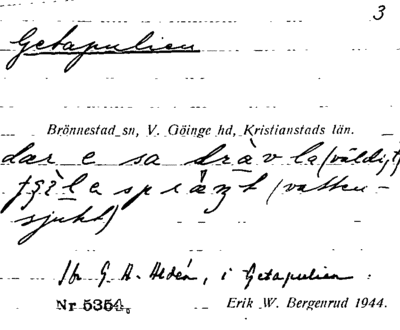 3
Getapulien
Brönnestad sn, V. Göinge hd, Kristianstads län.
dar e sa dràvla (väldigt)
sprànt (vatten-
sjukt)
G. A. Aldén, i Getapulien
Nr 5354. Erik W. Bergenrud 1944.